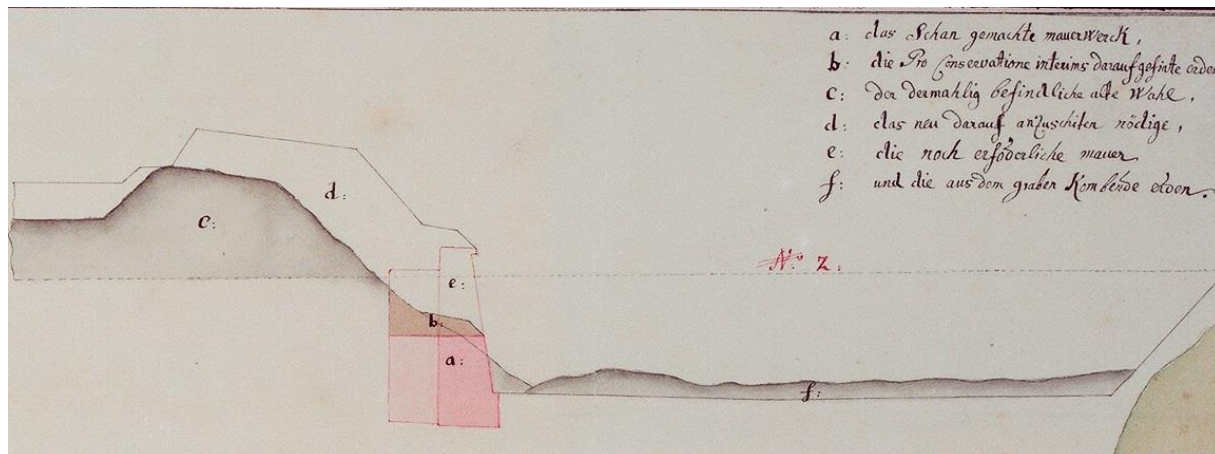 a: das Schan gemachte mauerWerck,
b: die Pro Conservatione interims darauf gefirte erden
c: der dermahlig befindliche alte Wahl,
d: das neu darauf anzuschiten nödige,
e: die noch erföderliche mauer
f: und die aus dem graben Kombende erden.
d:
c:
N.º 2.
e:
b:
a:
f: